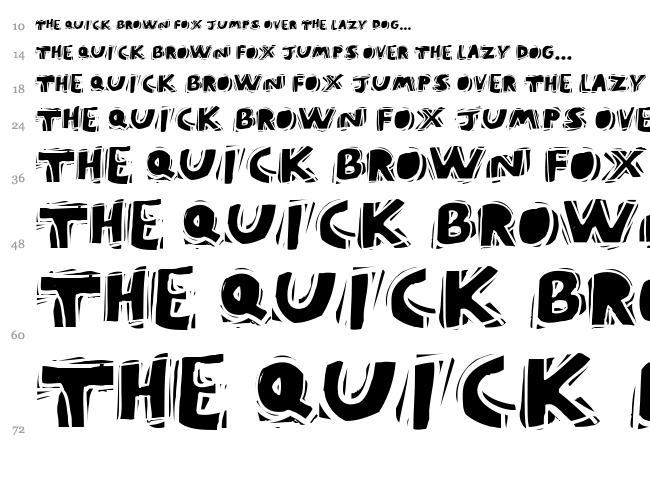 10 THE QUICK BROWN FOX JUMPS OVER THE LAZY DOG...
14 THE QUICK BROWN FOX JUMPS OVER THE LAZY DOG...
18 THE QUICK BROWN FOX JUMPS OVER THE LAZY
24 THE QUICK BROWN FOX JUMPS OVE
36 THE QUICK BROWN FOX
48 THE QUICK BROW
60 THE QUICK BRO
72 THE QUICK